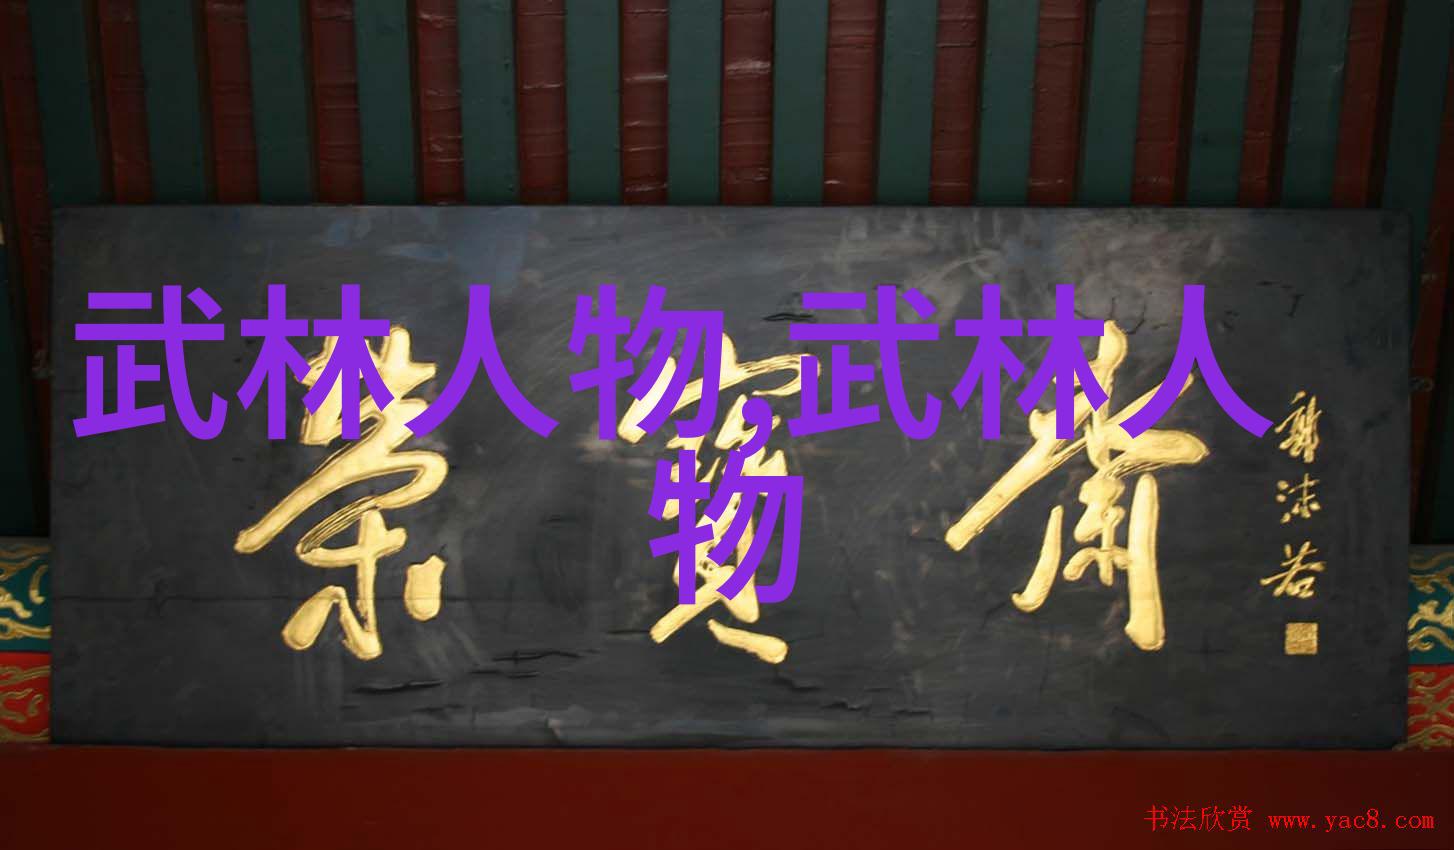 武林人物,武林人
物
荣宝斋
郭沫若
书法欣赏 www.yac8.com